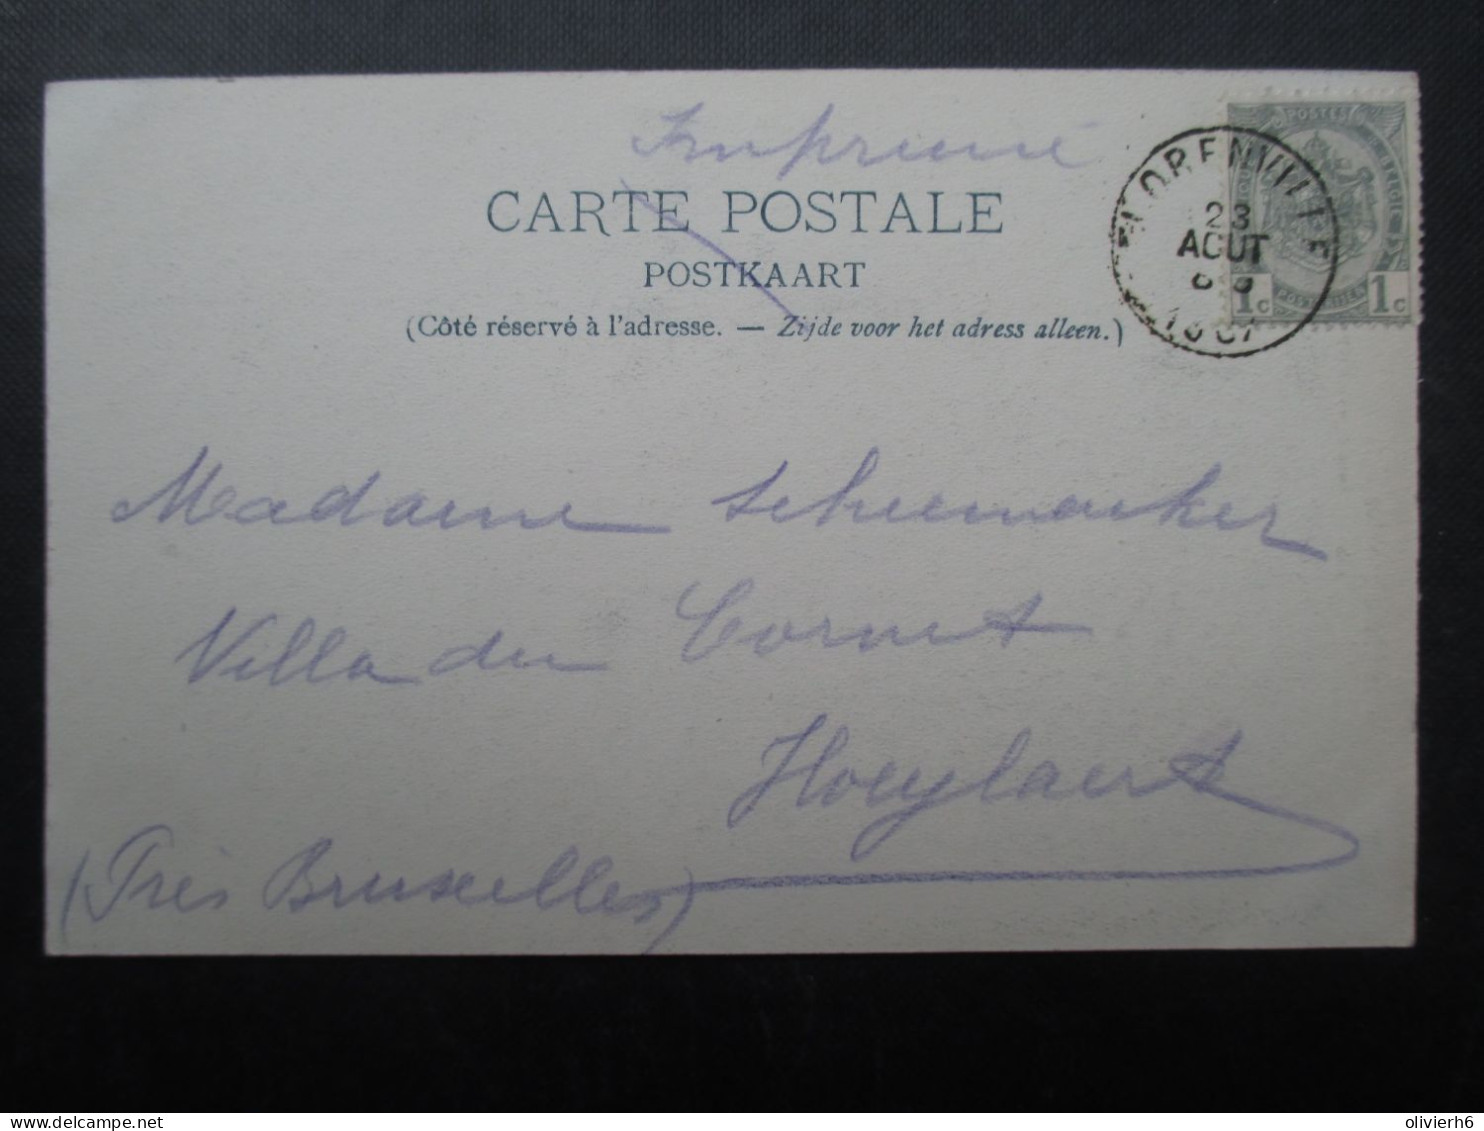 Imprimé
CARTE POSTALE
POSTKAART
(Côté réservé à l'adresse. — Zijde voor het adress alleen.)
FLORENVILLE
23
AOUT
POSTES
1c 1c
Madame Scheemaeker
Villa du Cornet
Hoeylaert
(Près Bruxelles)
olivierh6